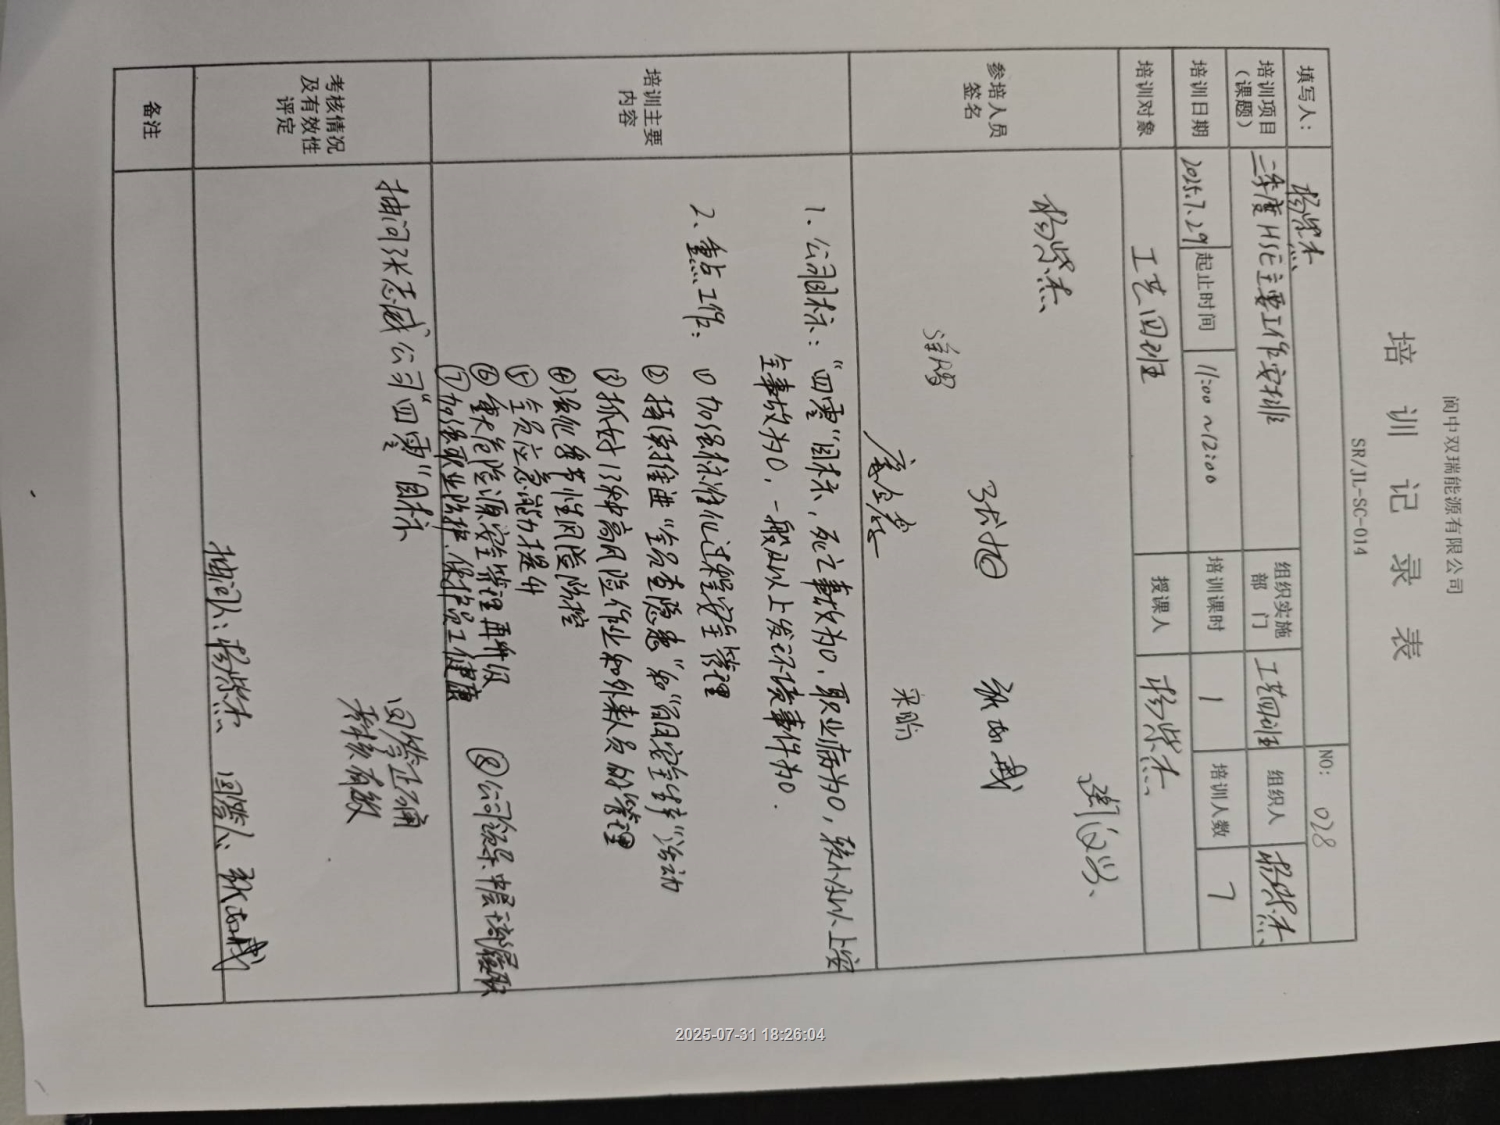 阆中双瑞能源有限公司
培训记录表
SR/JL-SC-014
填写人： 杨紫杰 NO: 028
培训项目（课题） 三季度HSE主要工作安排 组织实施部门 工艺四班 组织人 杨紫杰
培训日期 2025.7.29 起止时间 11:00~12:00 培训课时 1 培训人数 7
培训对象 工艺四班 授课人 杨紫杰
参培人员签名
杨紫杰
培训主要内容
1、公司目标："四零"目标，死亡事故为0，职业病为0，较小及以上安
全事故为0，一般及以上发环境事件为0.
2、重点工作： ① 加强标准化过程安全管理
② 持续推进"全员查隐患"和"百日安全生产"活动
③ 抓好13种高风险作业和外来人员的管理
④ 强化季节性风险防控
⑤ 全员应急能力提升
⑥ 重大危险源安全管理再升级
⑦ 加强职业防护、保护员工健康 ⑧ 公司领导、中层干部履职
考核情况及有效性评定
抽问张志威公司"四零"目标
回答正确
考核有效
抽问人：杨紫杰 回答人：张志威
备注
2025-07-31 18:26:04